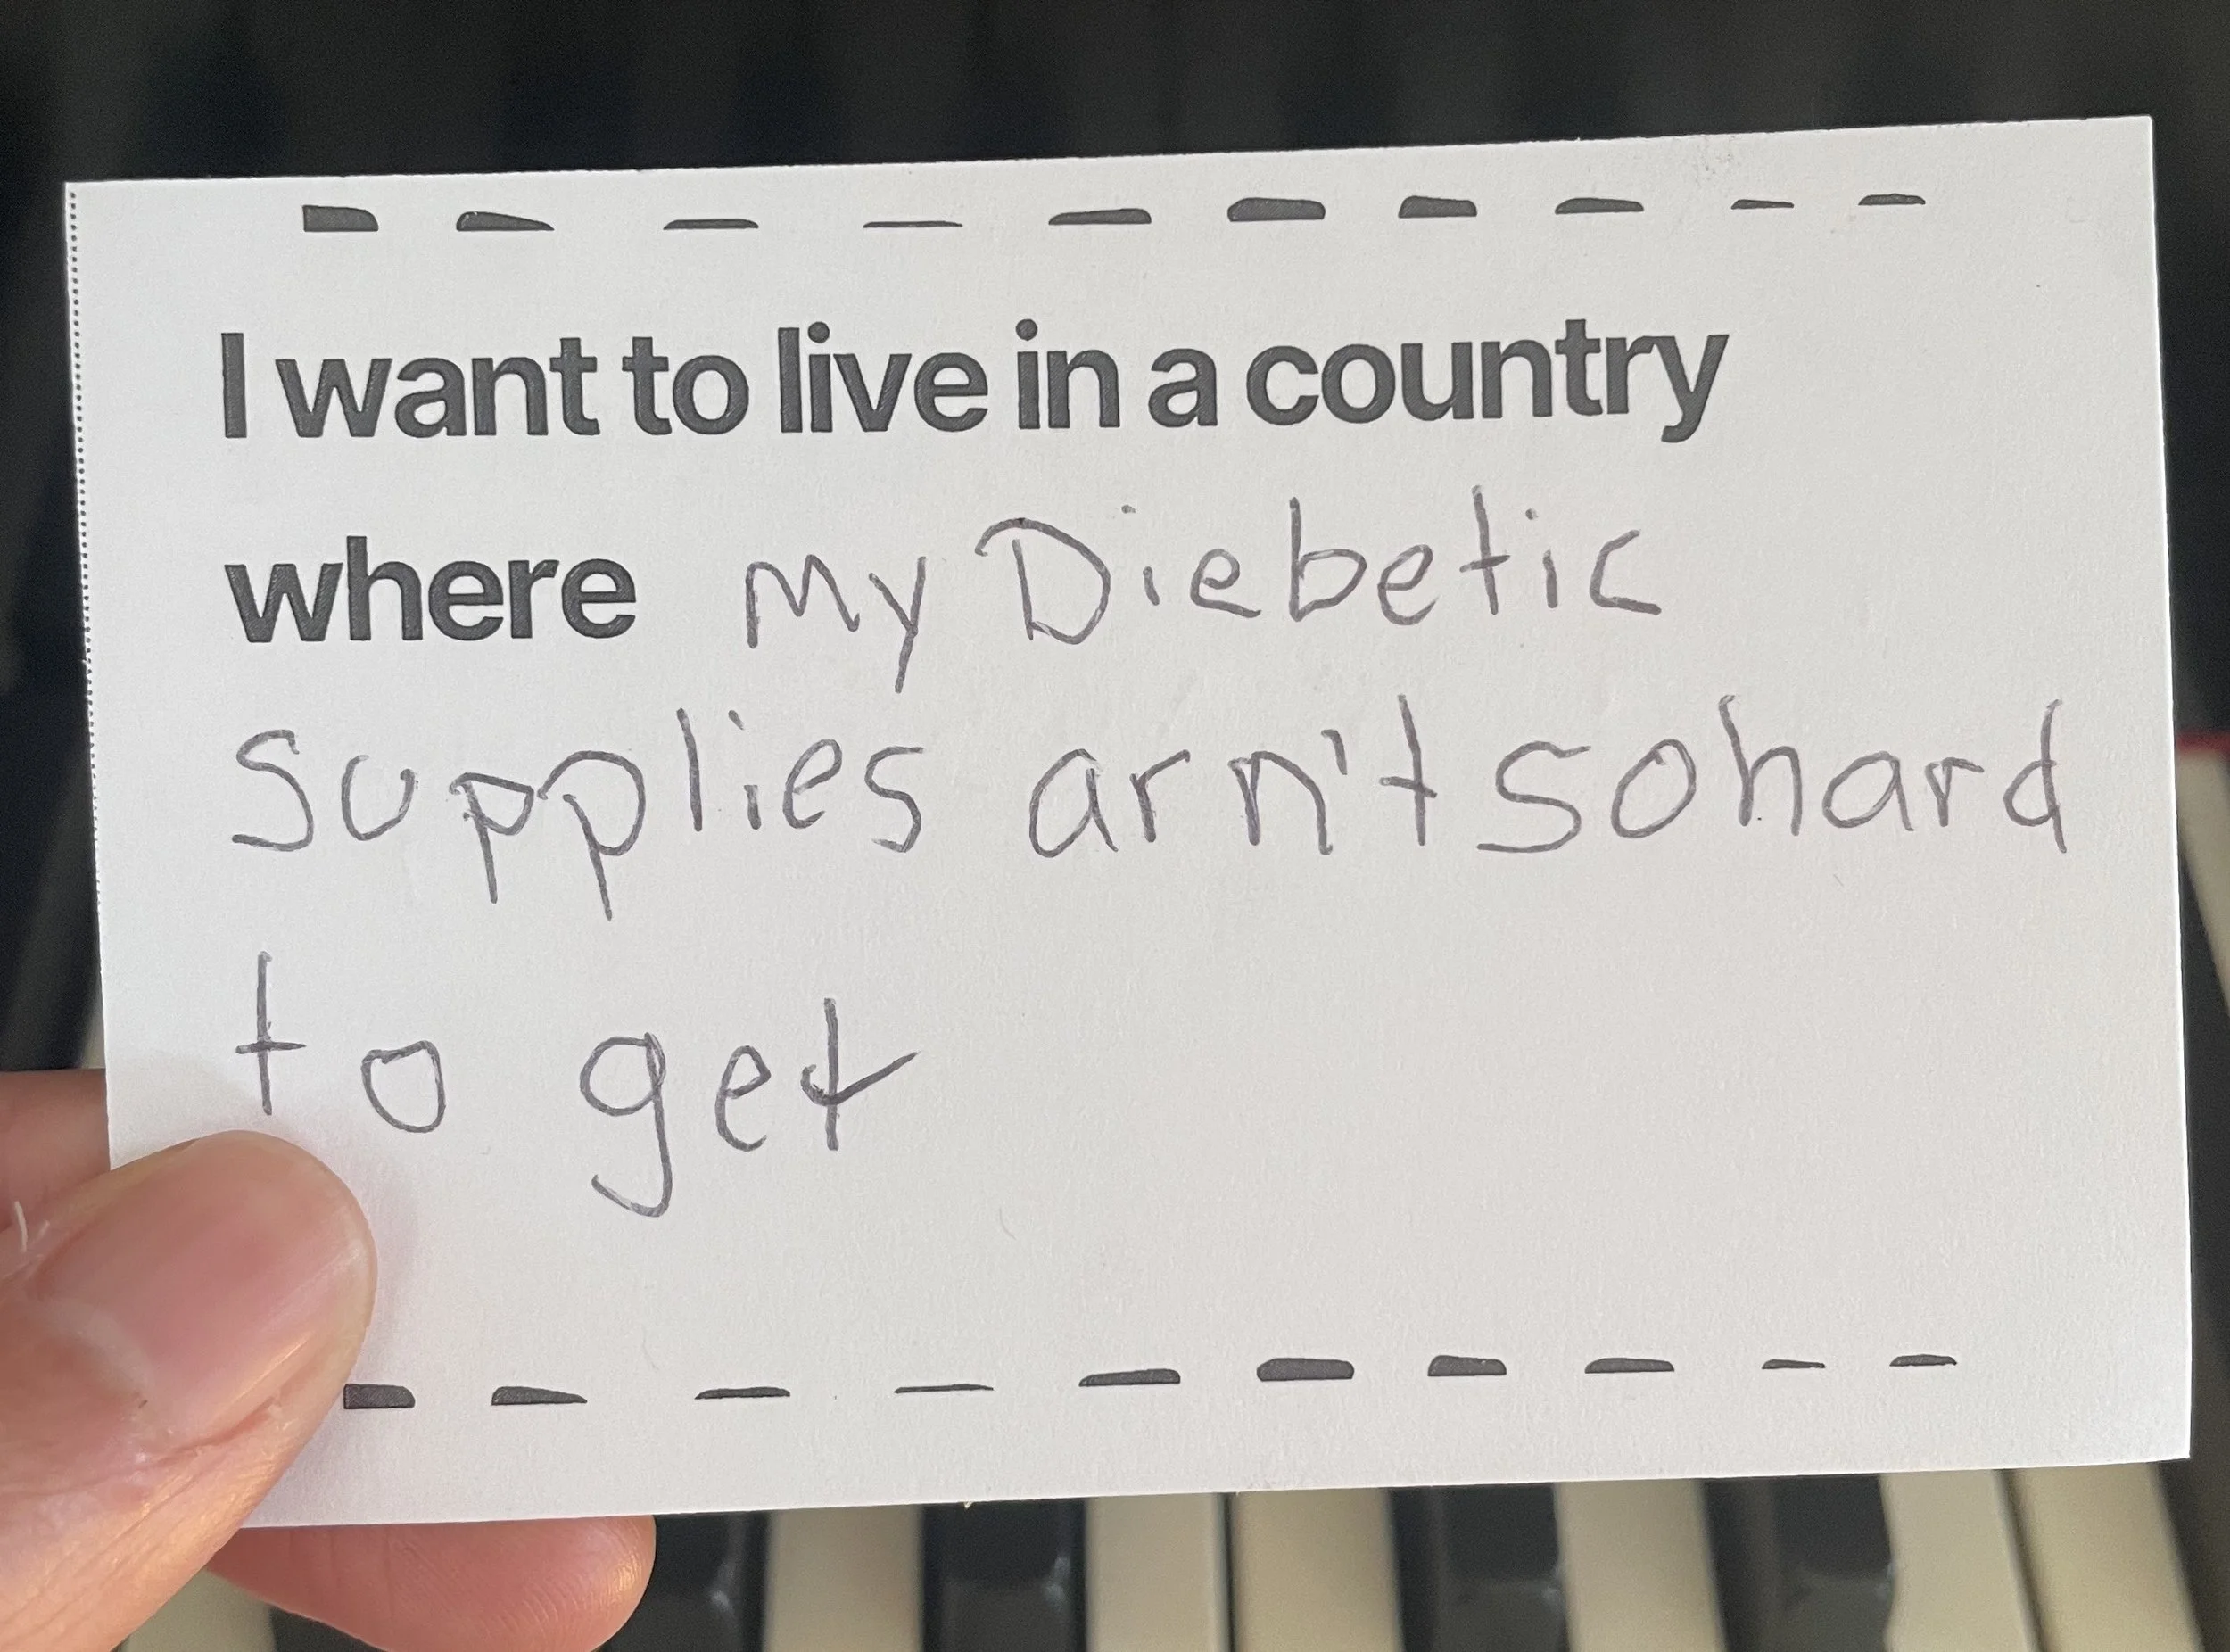 I want to live in a country
where my Diebetic
Supplies arn't so hard
to get